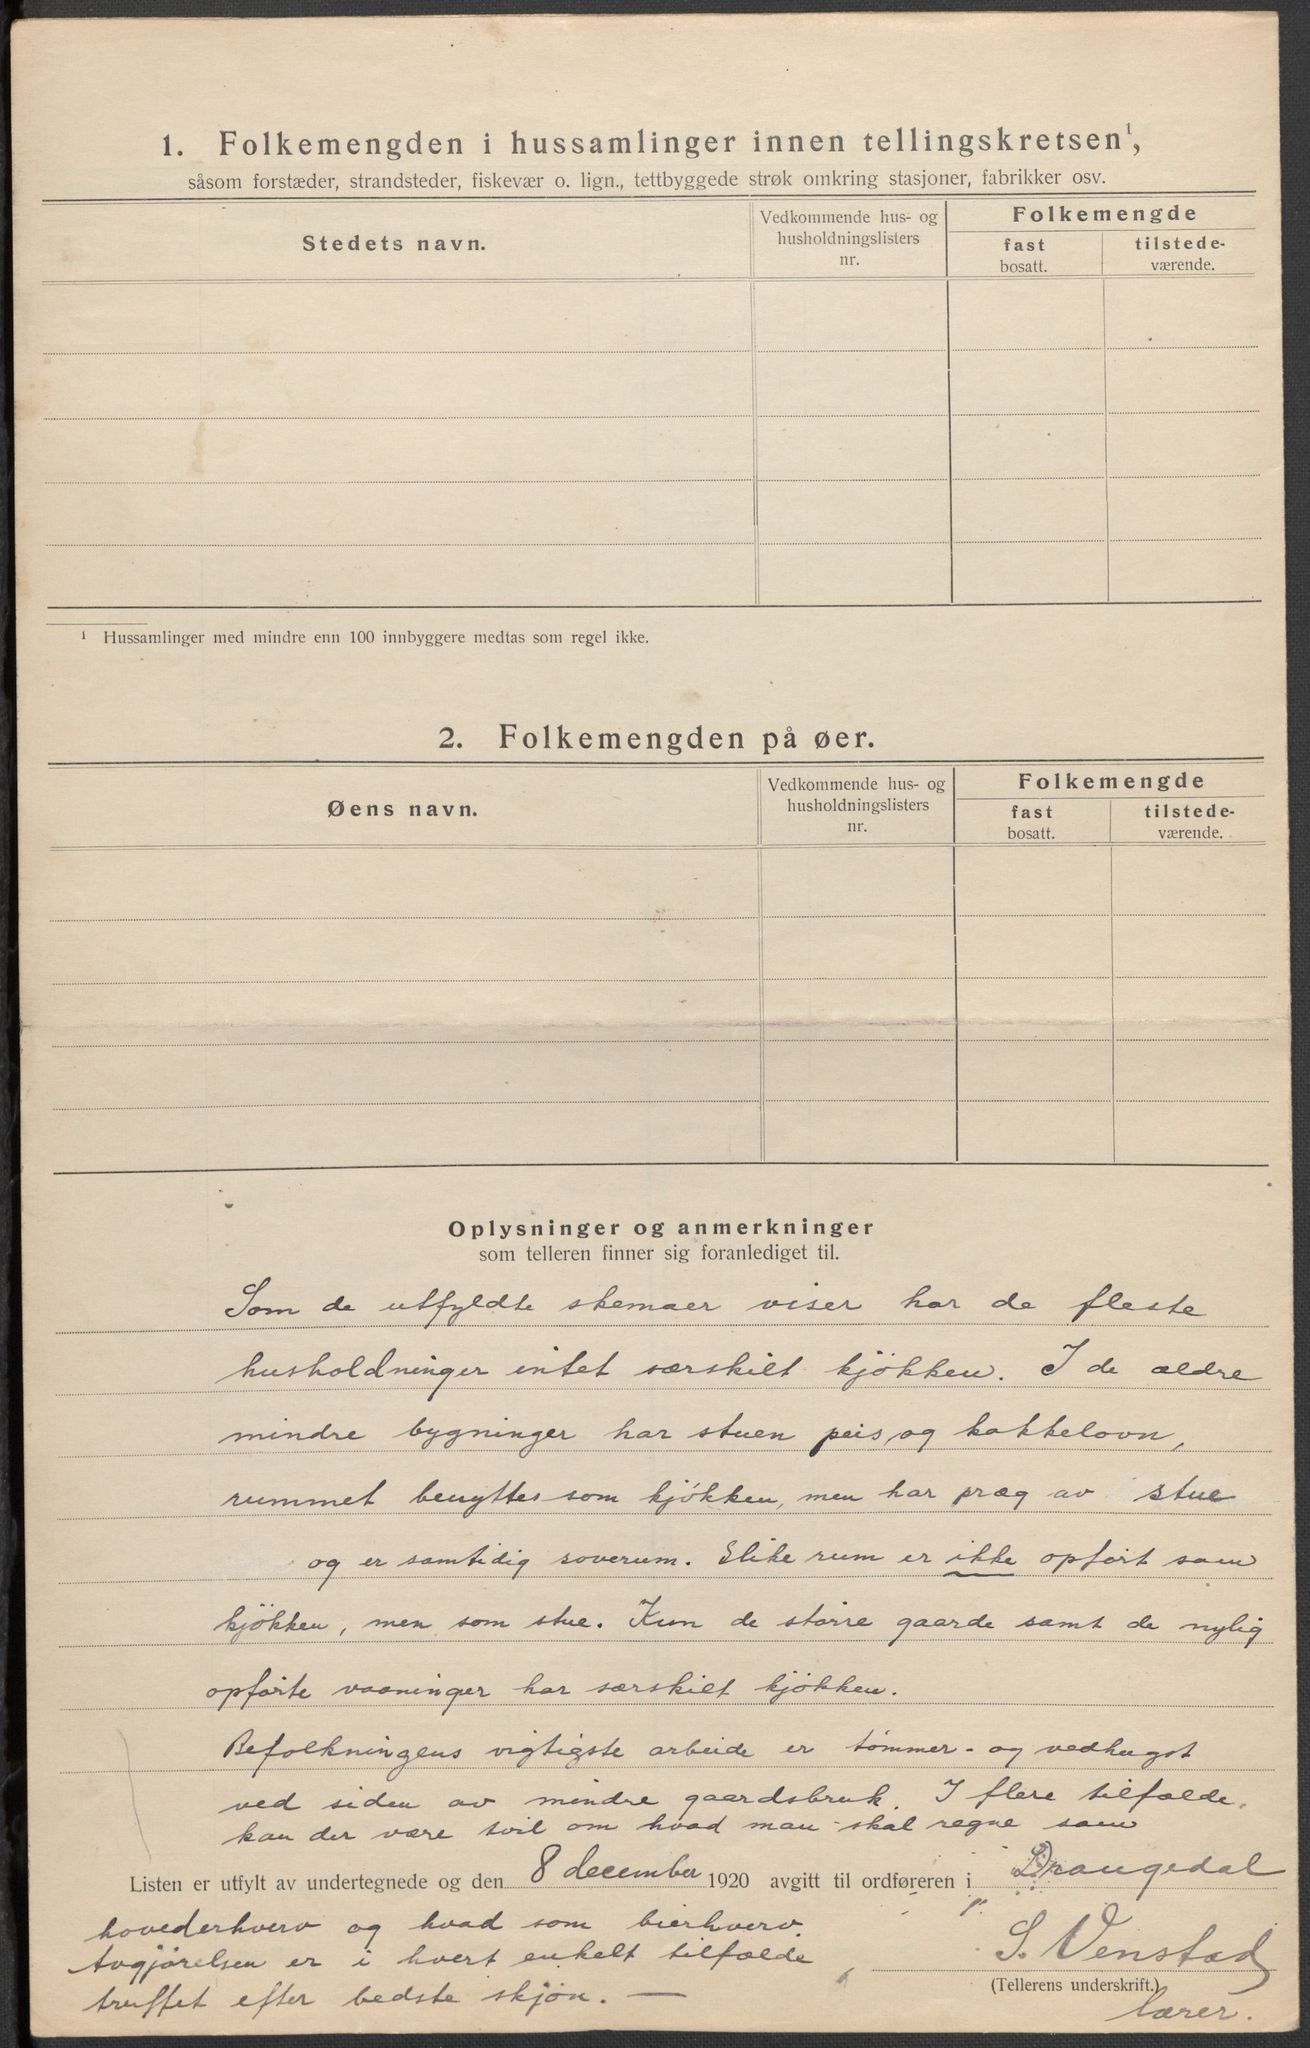 1. Folkemengden i hussamlinger innen tellingskretsen¹,
såsom forstæder, strandsteder, fiskevær o. lign., tettbyggede strøk omkring stasjoner, fabrikker osv.
Stedets navn.
Vedkommende hus- og
husholdningslisters
nr.
Folkemengde
fast
bosatt.
tilstede-
værende.
¹ Hussamlinger med mindre enn 100 innbyggere medtas som regel ikke.
2. Folkemengden på øer.
Øens navn.
Vedkommende hus- og
husholdningslisters
nr.
Folkemengde
fast
bosatt.
tilstede-
værende.
Oplysninger og anmerkninger
som telleren finner sig foranlediget til.
Som de utfyldte skemaer viser har de fleste
husholdninger intet særskilt kjökken. I de ældre
mindre bygninger har stuen peis og kakkelovn,
rummet benyttes som kjökken, men har præg av stue
og er samtidig soverum. Slike rum er ikke opført som
kjökken, men som stue. Kun de större gaarde samt de nylig
opførte vaaninger har særskilt kjökken.
Befolkningens vigtigste arbeide er tömmer- og vedhugst
ved siden av mindre gaardsbruk. I flere tilfælde
kan der være tvil om hvad man skal regne som
Listen er utfylt av undertegnede og den 8 december 1920 avgitt til ordføreren i Drangedal
hovederhverv og hvad som bierhverv.
Avgjørelsen er i hvert enkelt tilfælde
truffet efter bedste skjön. —
S. Venstad
(Tellerens underskrift.)
lærer.